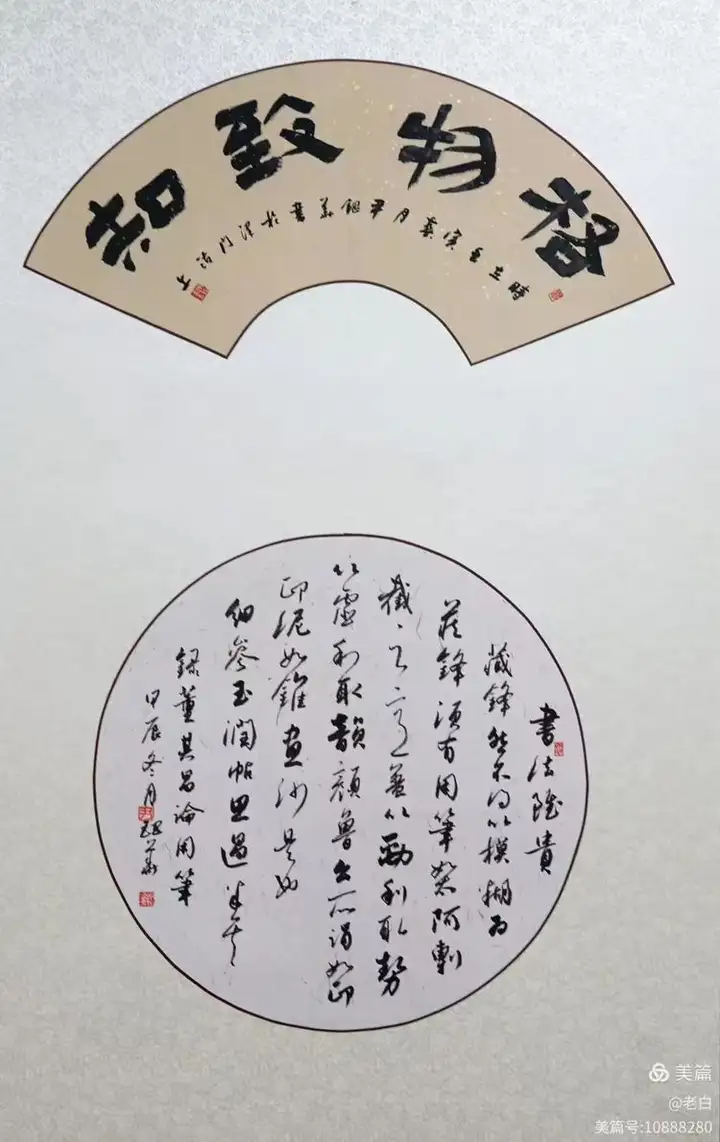 格物致知
時在壬寅月書於津門沽上
書法雖貴
藏鋒然不得以模糊為
藏鋒須有用筆如太阿剸
截之意蓋以勁利取勢
以虛和取韻顏魯公所謂如印
印泥如錐畫沙是也
細參玉潤帖思過半矣
錄董其昌論用筆
甲辰冬月
美篇
@老白
美篇号:10888280